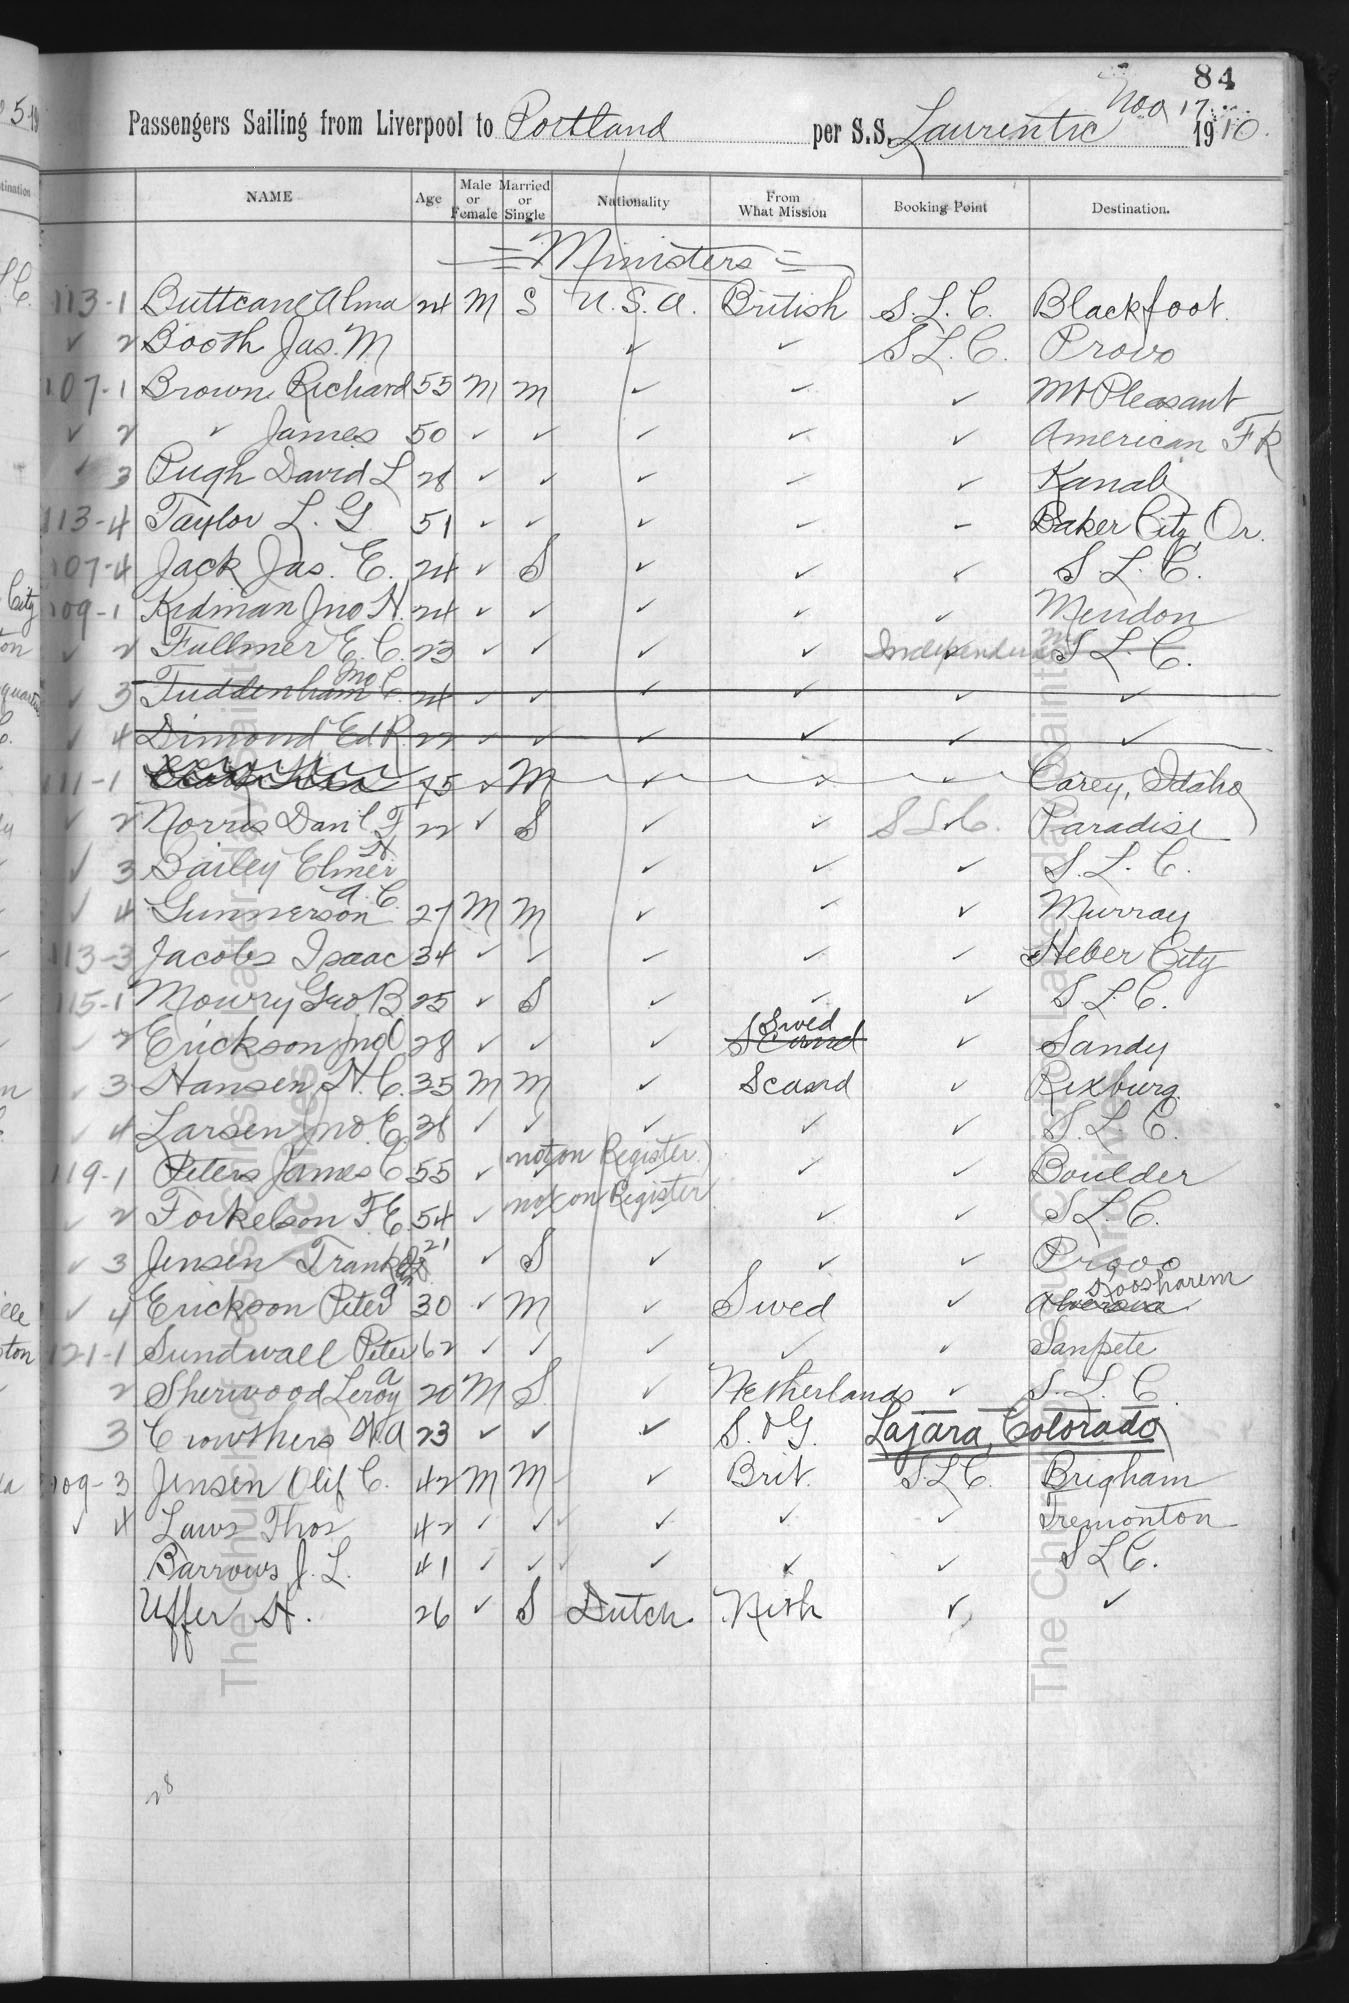 84
Nov 17
Passengers Sailing from Liverpool to Portland per S.S. Laurentic 1910.
NAME Age Male or Female Married or Single Nationality From What Mission Booking Point Destination.
= Ministers =
113-1 Buttcane Alma 24 M S U.S.A. British S.L.C. Blackfoot.
✓ 2 Booth Jas. M ✓ ✓ S.L.C. Provo
107-1 Brown Richard 55 M M ✓ ✓ ✓ Mt Pleasant
✓ 2 ✓ James 50 ✓ ✓ ✓ ✓ ✓ American F R
✓ 3 Pugh David L 28 ✓ ✓ ✓ ✓ ✓ Kanab
113-4 Taylor L. G 51 ✓ ✓ ✓ ✓ ✓ Baker City, Or.
107-4 Jack Jas. E. 24 ✓ S ✓ ✓ ✓ S.L.C.
109-1 Kidman Jno N. 24 ✓ ✓ ✓ ✓ ✓ Mendon
✓ 2 Fullmer E. C. 23 ✓ ✓ ✓ ✓ Independence Mo S L C.
✓ 3 Tuddenham Jno C. 24 ✓ ✓ ✓ ✓ ✓ ✓
✓ 4 Dimond Ed R. 22 ✓ ✓ ✓ ✓ ✓ ✓
111-1 75 ✓ M ✓ ✓ ✓ Carey, Idaho
✓ 2 Norris Danl. F 22 ✓ S ✓ ✓ S L C. Paradise
✓ 3 Bailey Elmer H ✓ ✓ ✓ S. L. C.
✓ 4 Gunnerson A. C. 27 M M ✓ ✓ ✓ Murray
113-3 Jacobs Isaac 34 ✓ ✓ ✓ ✓ ✓ Heber City
115-1 Mowry Geo. B. 25 ✓ S ✓ ✓ ✓ S.L.C.
✓ 2 Erickson Jno O 28 ✓ ✓ ✓ Scand Swed ✓ Sandy
✓ 3 Hansen H. C. 35 M M ✓ Scand ✓ Rexburg.
✓ 4 Larsen Jno. E. 38 ✓ ✓ ✓ ✓ ✓ S. L. C.
119-1 Peters James C. 55 ✓ not on Register ✓ ✓ Boulder
✓ 2 Torkelson F. E. 54 ✓ not on Register ✓ ✓ S.L.C.
✓ 3 Jensen Frank 21 ✓ S ✓ ✓ ✓ Provo
✓ 4 Erickson Peter A 30 ✓ M ✓ Swed ✓ Koosharem
121-1 Sundwall Peter 62 ✓ ✓ ✓ ✓ ✓ Sanpete
2 Sherwood Leroy A 20 M S. ✓ Netherlands ✓ S. L. C
3 Crowthers W A 23 ✓ ✓ ✓ S. & G. Lajara, Colorado
109-3 Jensen Olif C. 42 M M ✓ Brit. S.L.C. Brigham
✓ 4 Laws Thos 42 ✓ ✓ ✓ ✓ ✓ Tremonton
Barrows J. L. 41 ✓ ✓ ✓ ✓ ✓ S L C.
Uffer H. 26 ✓ S Dutch Neth ✓ ✓
28
The Church of Jesus Christ of Latter-day Saints
Archives
The Church of Jesus Christ of Latter-day Saints
Archives